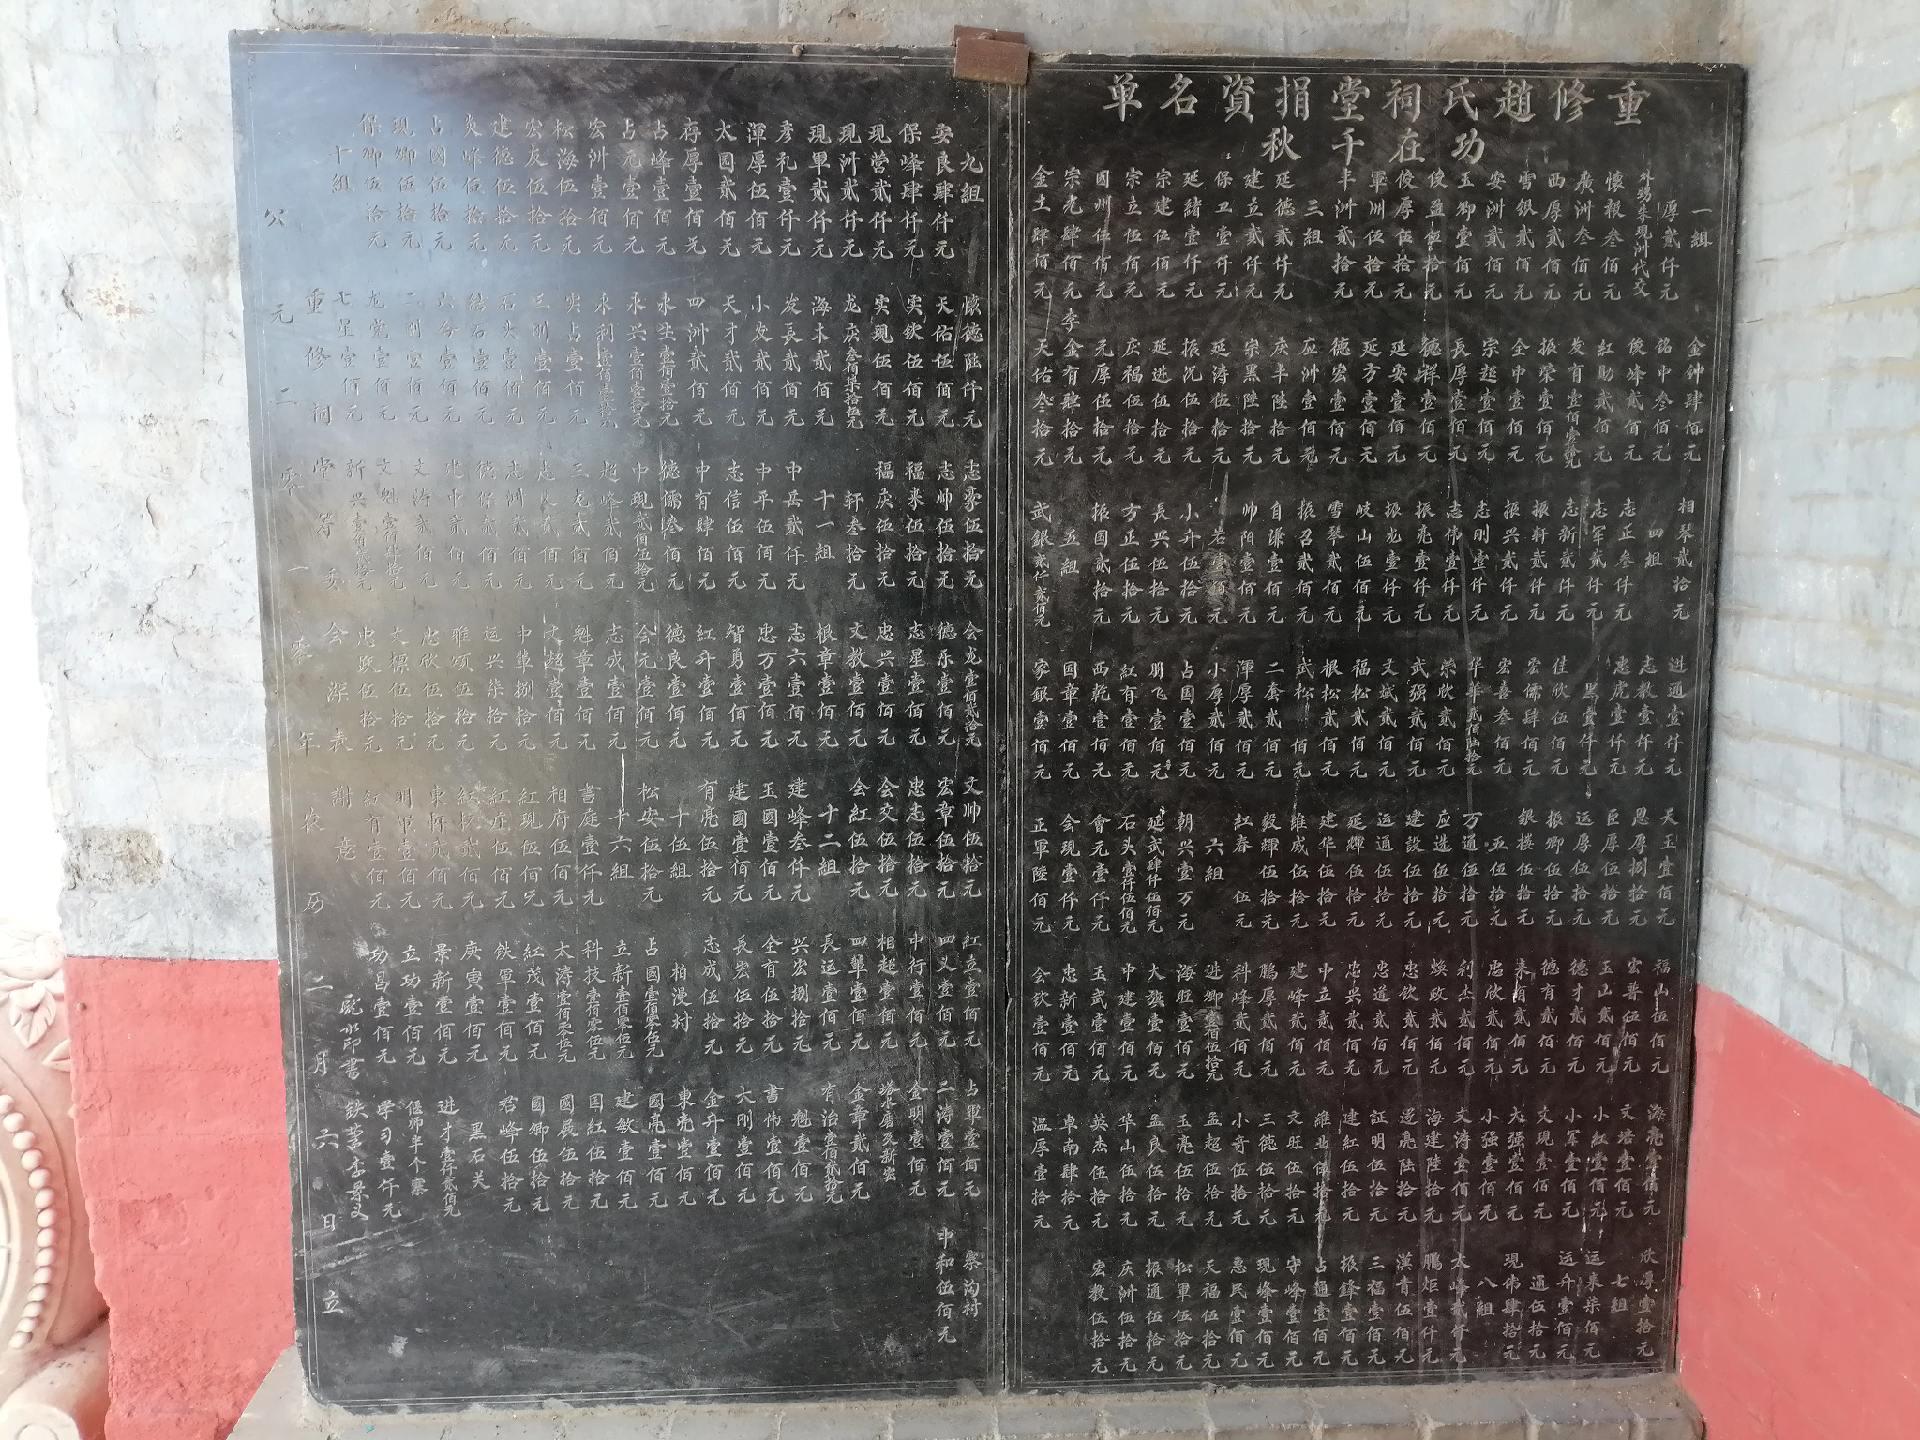 重修趙氏祠堂捐資名单
功在千秋
一組
厚贰仟元
外甥朱现洲代交
懷報叁佰元
廣洲叁佰元
西厚贰佰元
雪银贰佰元
安洲贰佰元
玉卿壹佰元
俊盈伍拾元
俊厚伍拾元
軍洲伍拾元
丰洲贰拾元
三組
延德贰仟元
建立贰仟元
保卫壹仟元
延緒壹仟元
宗建伍佰元
宗立伍佰元
國州伍佰元
宗光肆佰元
金土肆佰元
金钟肆佰元
铭中叁佰元
俊峰贰佰元
红勋贰佰元
发有壹佰壹拾元
振荣壹佰元
全中壹佰元
宗超壹佰元
長厚壹佰元
德祥壹佰元
延安壹佰元
延方壹佰元
德宏壹佰元
应洲壹佰元
庆丰陆拾元
宗黑陆拾元
延涛伍拾元
振沉伍拾元
延进伍拾元
应福伍拾元
元厚伍拾元
李金有肆拾元
天佑叁拾元
相琴贰拾元
四組
志正叁仟元
志军贰仟元
志新贰仟元
振轩贰仟元
振兴贰仟元
志刚壹仟元
志伟壹仟元
振亮壹仟元
振龙壹仟元
岐山伍佰元
雪琴贰佰元
振召贰佰元
自谦壹佰元
帅阳壹佰元
岩壹佰元
小升伍拾元
長兴伍拾元
方正伍拾元
振国贰拾元
五組
武銀贰仟贰佰元
进通壹仟元
志敖壹仟元
忠虎壹仟元
黑壹仟元
佳欣伍佰元
宏儒肆佰元
宏喜叁佰元
华華贰佰陆拾元
荣欣贰佰元
武强贰佰元
文斌贰佰元
福松贰佰元
根松贰佰元
武松贰佰元
二套贰佰元
渾厚贰佰元
小厚贰佰元
占国壹佰元
朋飞壹佰元
紅有壹佰元
西乾壹佰元
国章壹佰元
家銀壹佰元
天玉壹佰元
恩厚捌拾元
臣厚伍拾元
运厚伍拾元
振卿伍拾元
银楼伍拾元
五伍拾元
万通伍拾元
应选伍拾元
建設伍拾元
运通伍拾元
延輝伍拾元
建华伍拾元
维成伍拾元
毅輝伍拾元
红春伍元
六組
朝兴壹万元
延武肆仟伍佰元
石头壹仟伍佰元
會元壹仟元
会现壹仟元
正軍陸佰元
福山伍佰元
宏普伍佰元
玉山贰佰元
德才贰佰元
德有贰佰元
朱有贰佰元
忠欣贰佰元
利杰贰佰元
焕政贰佰元
忠钦贰佰元
忠道贰佰元
忠兴贰佰元
中立贰佰元
建峰贰佰元
鹏厚贰佰元
科峰贰佰元
进卿壹佰伍拾元
海旺壹佰元
大强壹佰元
中建壹佰元
玉武壹佰元
忠新壹佰元
会钦壹佰元
海亮壹佰元
文培壹佰元
小红壹佰元
小军壹佰元
文现壹佰元
大强壹佰元
小强壹佰元
文涛壹佰元
海建陸拾元
运亮陆拾元
証明伍拾元
建紅伍拾元
維业伍拾元
文旺伍拾元
三德伍拾元
小奇伍拾元
孟超伍拾元
玉亮伍拾元
孟良伍拾元
华山伍拾元
英杰伍拾元
卓南肆拾元
温厚壹拾元
欣厚壹拾元
七組
运来柒佰元
运升壹佰元
通伍拾元
現伟肆拾元
八組
太峰贰仟元
鵬炬壹仟元
漢青伍佰元
三福壹佰元
振鋒壹佰元
占通壹佰元
守峰壹佰元
现峰壹佰元
惠民壹佰元
天福伍拾元
松軍伍拾元
振通伍拾元
庆洲伍拾元
宏敖伍拾元
九組
安良肆仟元
保峰肆仟元
现营贰仟元
現洲贰仟元
現軍贰仟元
彦礼壹仟元
渾厚伍佰元
太国贰佰元
存厚壹佰元
占峰壹佰元
占元壹佰元
宏洲壹佰元
松海伍拾元
宏友伍拾元
建德伍拾元
炎峰伍拾元
占國伍拾元
現卿伍拾元
保卿伍拾元
十組
懷德陆仟元
天佑伍佰元
实钦伍佰元
实現伍佰元
龙庆叁佰柒拾伍元
海木贰佰元
发長贰佰元
小发贰佰元
天才贰佰元
四洲贰佰元
永生壹佰壹拾元
永兴壹佰壹拾元
永利壹佰壹拾元
实占壹佰元
三刚壹佰元
石头壹佰元
結石壹佰元
二刚壹佰元
龙党壹佰元
七星壹佰元
志豪伍拾元
志帅伍拾元
福来伍拾元
福庆伍拾元
轩叁拾元
十一組
中岳贰仟元
中平伍佰元
志信伍佰元
中有肆佰元
德儒叁佰元
中現贰佰伍拾元
超峰贰佰元
三龙贰佰元
志長贰佰元
志洲贰佰元
德保贰佰元
建中贰佰元
文涛贰佰元
文魁壹佰肆拾元
新兴壹佰叁拾元
会龙壹佰贰拾元
德乐壹佰元
志星壹佰元
忠兴壹佰元
文敖壹佰元
根章壹佰元
志六壹佰元
忠万壹佰元
智勇壹佰元
红升壹佰元
德良壹佰元
会元壹佰元
志成壹佰元
魁章壹佰元
文超壹佰元
中華捌拾元
运兴柒拾元
雅頌伍拾元
忠欣伍拾元
文標伍拾元
忠跃伍拾元
文帅伍拾元
宏章伍拾元
忠志伍拾元
会交伍拾元
会紅伍拾元
十二組
建峰叁仟元
玉國壹佰元
建國壹佰元
有亮伍拾元
十五組
松安伍拾元
十六組
書庭壹仟元
相府伍佰元
紅現伍佰元
紅庄伍佰元
紅核贰佰元
東軒贰佰元
明軍壹佰元
紅有壹佰元
紅立壹佰元
四义壹佰元
中行壹佰元
相超壹佰元
四華壹佰元
長运壹佰元
兴宏捌拾元
全有伍拾元
長宏伍拾元
志成伍拾元
柏漫村
占國壹佰零伍元
立新壹佰零伍元
科技壹佰零伍元
太濤壹佰零伍元
紅茂壹佰元
鉄軍壹佰元
庚寅壹佰元
景新壹佰元
立功壹佰元
功昌壹佰元
占軍壹佰元
二涛壹佰元
金明壹佰元
塔水磨及新宏
金章贰佰元
有治壹佰贰拾元
魁壹佰元
書伟壹佰元
大刚壹佰元
金升壹佰元
東亮壹佰元
國亮壹佰元
建敏壹佰元
国紅伍拾元
國展伍拾元
國卿伍拾元
君峰伍拾元
黑石关
进才壹仟贰佰元
偃师半个寨
学习壹仟元
寨沟村
中和伍佰元
重修祠堂筹委会深表謝意
庞水印書
鉄笔李景文
公元二零一零年农历二月六日立